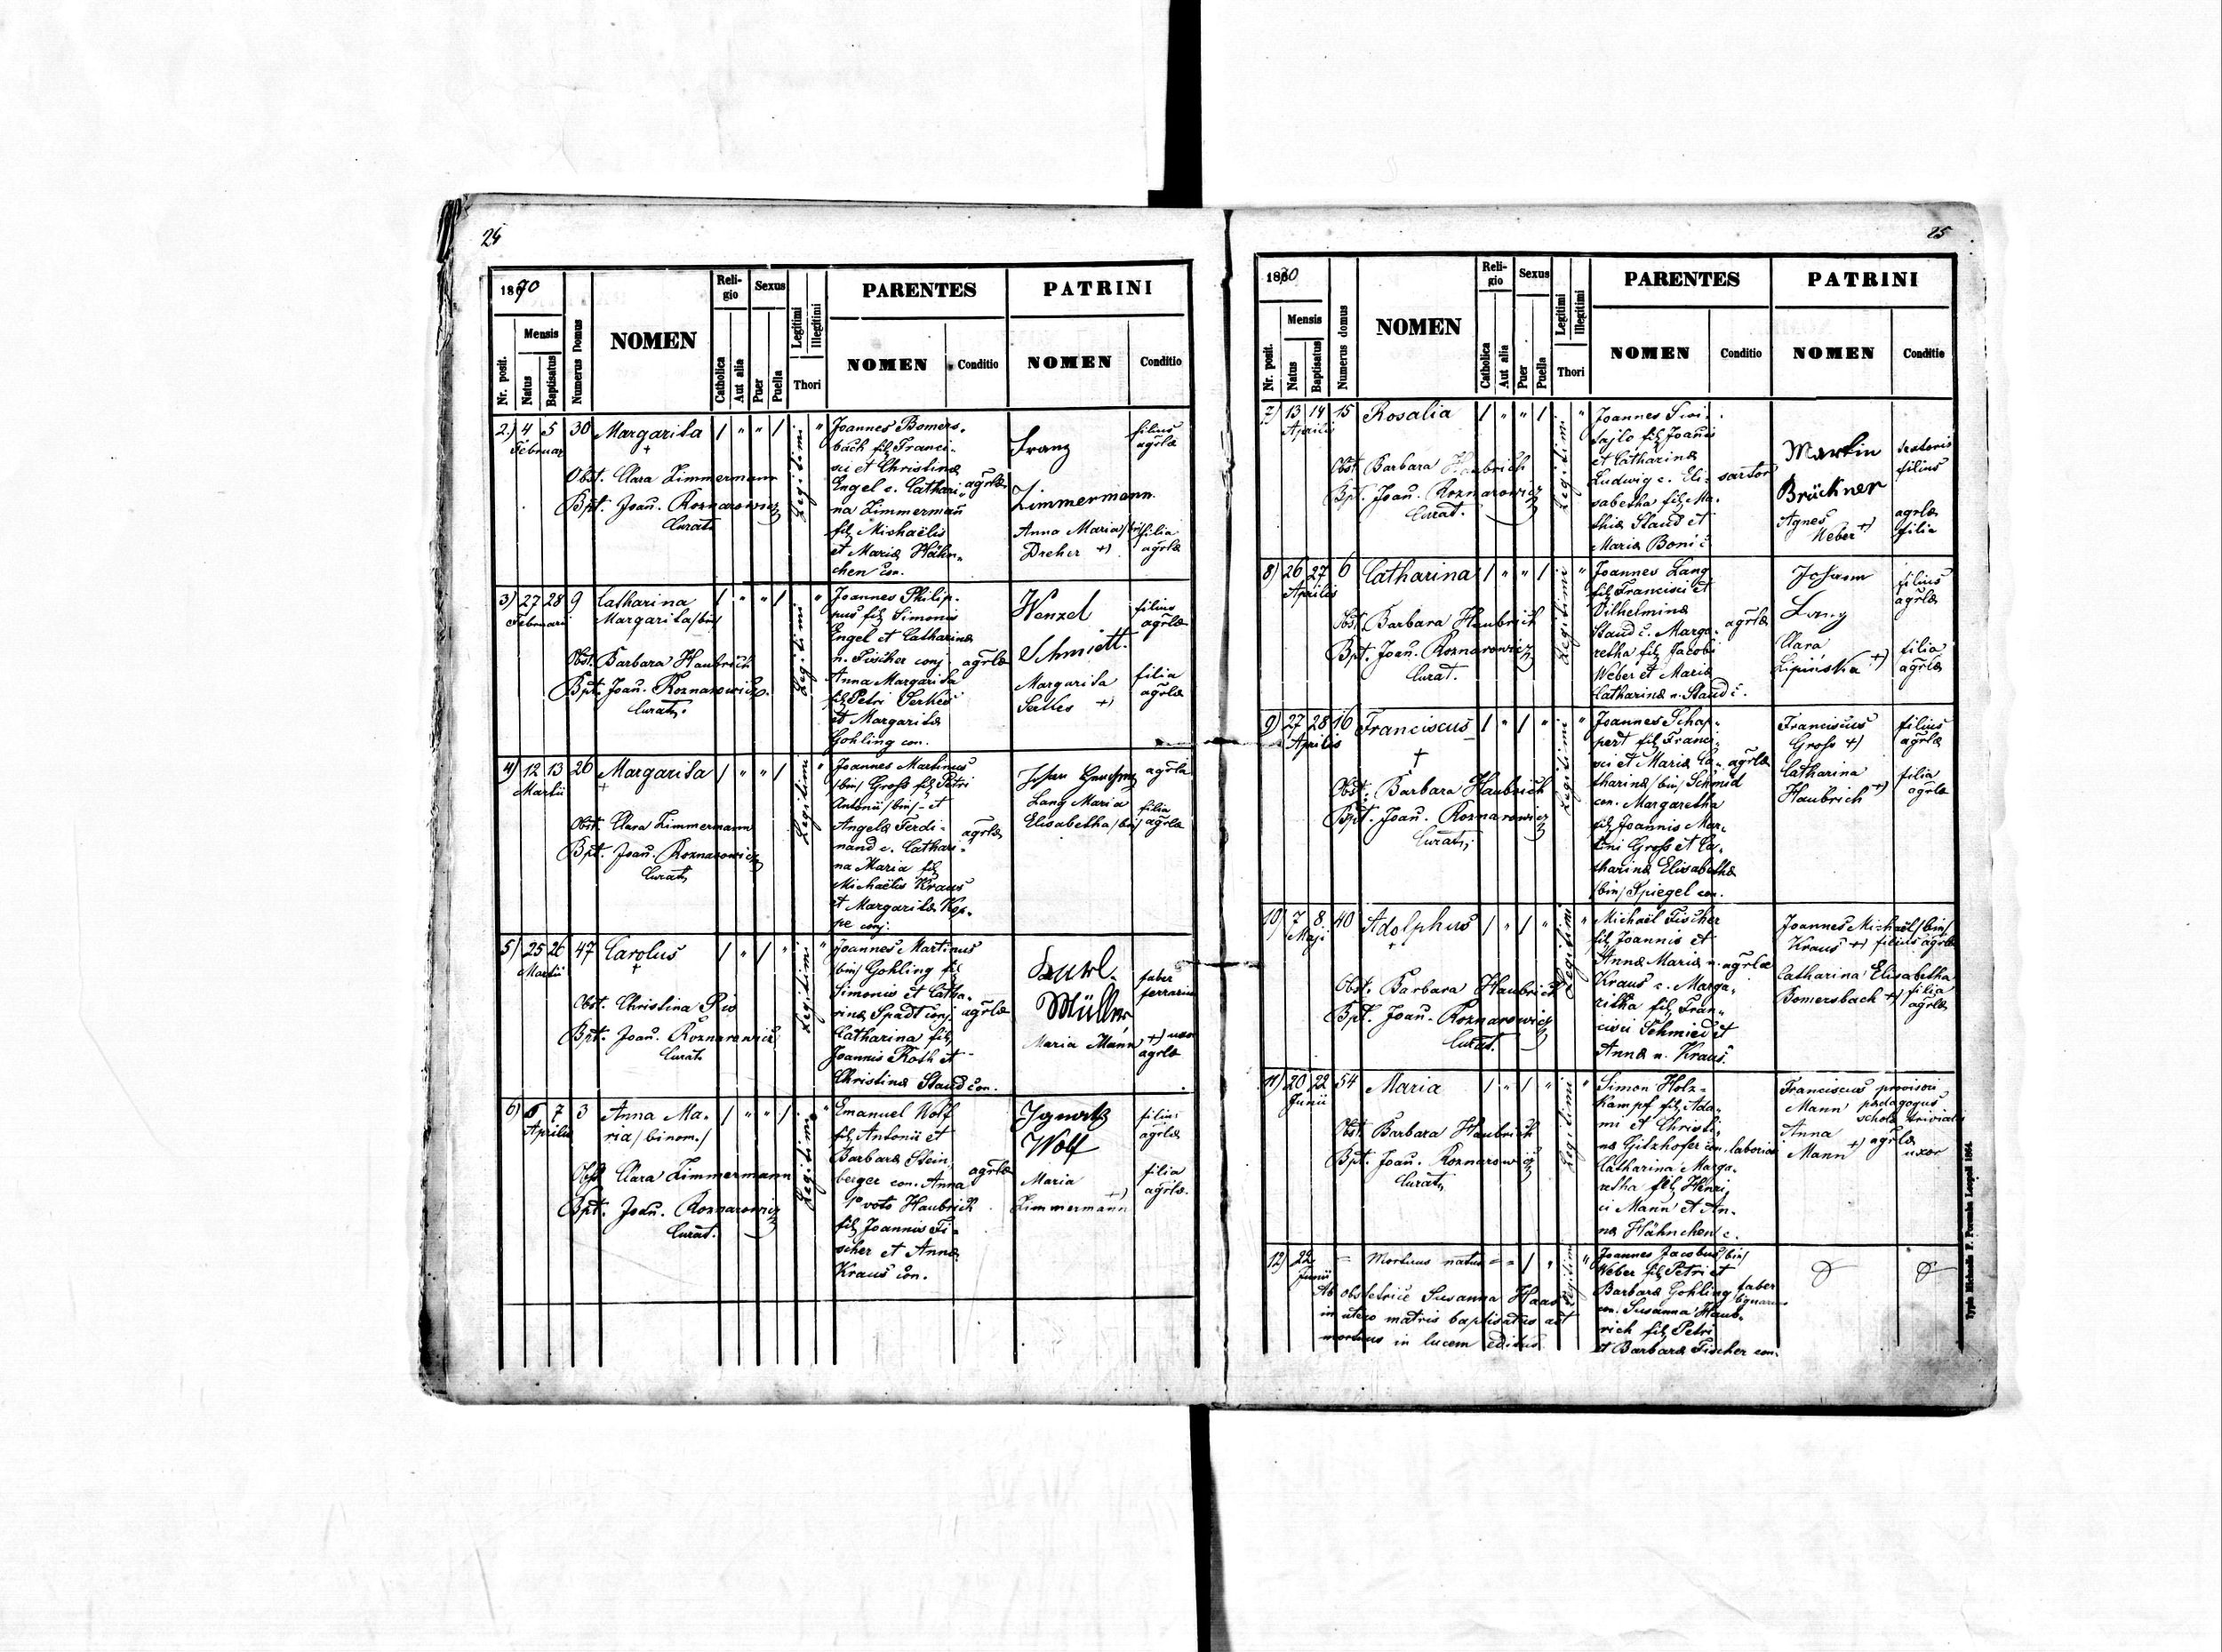 24
1870
Reli-
gio
Sexus
Legitimi
Illegitimi
PARENTES
PATRINI
Nr. posit.
Mensis
Natus
Baptisatus
Numerus Domus
NOMEN
Catholica
Aut alia
Puer
Puella
Thori
NOMEN
Conditio
NOMEN
Conditio
2) 4 5 30 Margarita / " " / Legitimi "
Februar
+
Obst. Clara Zimmermann
Bpt. Joan. Roznarowicz
Curat.
Joannes Bomers-
bach fil. Franci-
sci et Christinæ
Engel c. Cathari-
na Zimmermañ
fil. Michaëlis
et Mariæ Hähn-
chen con.
agrlæ
Franz
Zimmermann
Anna Maria /bin/
Dreher +)
filius
agrlæ
filia
agrlæ
3) 27 28 9 Catharina / " " / Legitimi "
Februarii
Margarita /bin/
Obst. Barbara Haubrich
Bpt. Joan. Roznarowicz
Curat.
Joannes Philip-
pus fil. Simonis
Engel et Catharinæ
n. Fischer conj
Anna Margarita
fil. Petri Serkes
et Margaritæ
Gohling con.
agrlæ
Wenzel
Schmiett.
Margarita
Serkes +)
filius
agrlæ
filia
agrlæ
4) 12 13 26 Margarita / " " / Legitimi "
Martii
+
Obst. Clara Zimmermann
Bpt. Joan. Roznarowicz
Curat.
Joannes Martinus
/bin/ Groß fil. Petri
Antonii /bin/ et
Angelæ Ferdi-
nand c. Cathari-
na Maria fil.
Michaëlis Kraus
et Margaritæ Kop-
pe conj.
agrlæ
Lang Maria
Elisabetha /bin/
agrlæ
filia
agrlæ
5) 25 26 47 Carolus / " / " Legitimi "
Martii
+
Obst. Christina Rio
Bpt. Joan. Roznarowicz
Curat.
Joannes Martinus
/bin/ Gohling fil.
Simonis et Catha-
rinæ Spadt conj.
Catharina fil.
Joannis Roth et
Christinæ Staud con.
agrlæ
Karl
Müller
Maria Mann +)
faber
ferrarius
uxor
agrlæ
6) 6 7 3 Anna Ma- / " " / Legitimi "
Aprilis
ria /binom./
Obst. Clara Zimmermann
Bpt. Joan. Roznarowicz
Curat.
Emanuel Wolf
fil. Antonii et
Barbaræ Stein-
berger con. Anna
1º voto Haubrich
fil. Joannis Fi-
scher et Annæ
Kraus con.
agrlæ
Ignatz
Wolf
Maria +)
Zimmermann
filius
agrlæ
filia
agrlæ.
25
1870
Reli-
gio
Sexus
Legitimi
Illegitimi
PARENTES
PATRINI
Nr. posit.
Mensis
Natus
Baptisatus
Numerus domus
NOMEN
Catholica
Aut alia
Puer
Puella
Thori
NOMEN
Conditio
NOMEN
Conditio
7) 13 14 15 Rosalia / " " / Legitimi "
Aprilis
Obst. Barbara Haubrich
Bpt. Joan. Roznarowicz
Curat.
Joannes Swi-
sajlo fil. Joanis
et Catharinæ
Ludwig c. Eli-
sabetha fil. Ma-
thiæ Staud et
Mariæ Boni c̄
sartor
Martin
Brückner
Agnes
Weber +)
filius
agrlæ
filia
8) 26 27 6 Catharina / " " / Legitimi "
Aprilis
Obst. Barbara Haubrich
Bpt. Joan. Roznarowicz
Curat.
Joannes Lang
fil. Francisci et
Vilhelminæ
Staud c. Marga-
retha fil. Jacobi
Weber et Mariæ
Catharinæ n. Staud c.
agrlæ
Johann
Lang
Clara
Lipinska +)
filius
agrlæ
filia
agrlæ
9) 27 28 16 Franciscus / " / " Legitimi "
Aprilis
+
Obst. Barbara Haubrich
Bpt. Joan. Roznarowicz
Curat.
Joannes Schap-
pert fil. Franci-
sci et Mariæ Ca-
tharinæ /bin/ Schmid
con. Margaretha
fil. Joannis Mar-
tini Groß et Ca-
tharinæ Elisabethæ
/bin/ Spiegel con.
agrlæ
Franciscus
Groß +)
Catharina
Haubrich +)
filius
agrlæ
filia
agrlæ
10) 7 8 40 Adolphus / " / " Legitimi "
Maji
+
Obst. Barbara Haubrich
Bpt. Joan. Roznarowicz
Curat.
Michaël Fischer
fil. Joannis et
Annæ Mariæ n.
Kraus c. Marga-
ritha fil. Fran-
cisci Schmied et
Annæ n. Kraus.
agrlæ
Joannes Michaël /bin/
Kraus +) filius agrlæ
Catharina Elisabetha
Bomersbach +)
filia
agrlæ
11) 20 22 54 Maria / " / " Legitimi "
Junii
Obst. Barbara Haubrich
Bpt. Joan. Roznarowicz
Curat.
Simon Holz-
kampf fil. Ada-
mi et Christi-
næ Gitzhofer con.
Catharina Marga-
retha fil. Henri-
ci Mann et An-
næ Hähnchen c.
Franciscus
Mann
Anna
Mann +)
provisori
pædagogus
scholæ trivialis
agrlæ
uxor
12) 22 = Mortuus natus = = / " Legitimi "
Junii
Ab obstetrice Susanna Haas
in utero matris baptisatus ast
mortuus in lucem editus
Joannes Jacobus /bin/
Weber fil. Petri et
Barbaræ Gohling
con. Susanna Haub-
rich fil. Petri
et Barbaræ Fischer con.
faber
lignarius
Typis Michaelis F. Poremba Leopoli 1864.